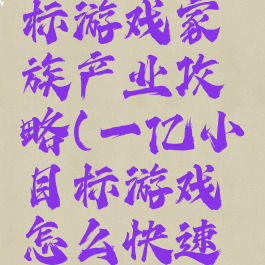 标游戏家
族产业攻
略(一亿小
目标游戏
怎么快速